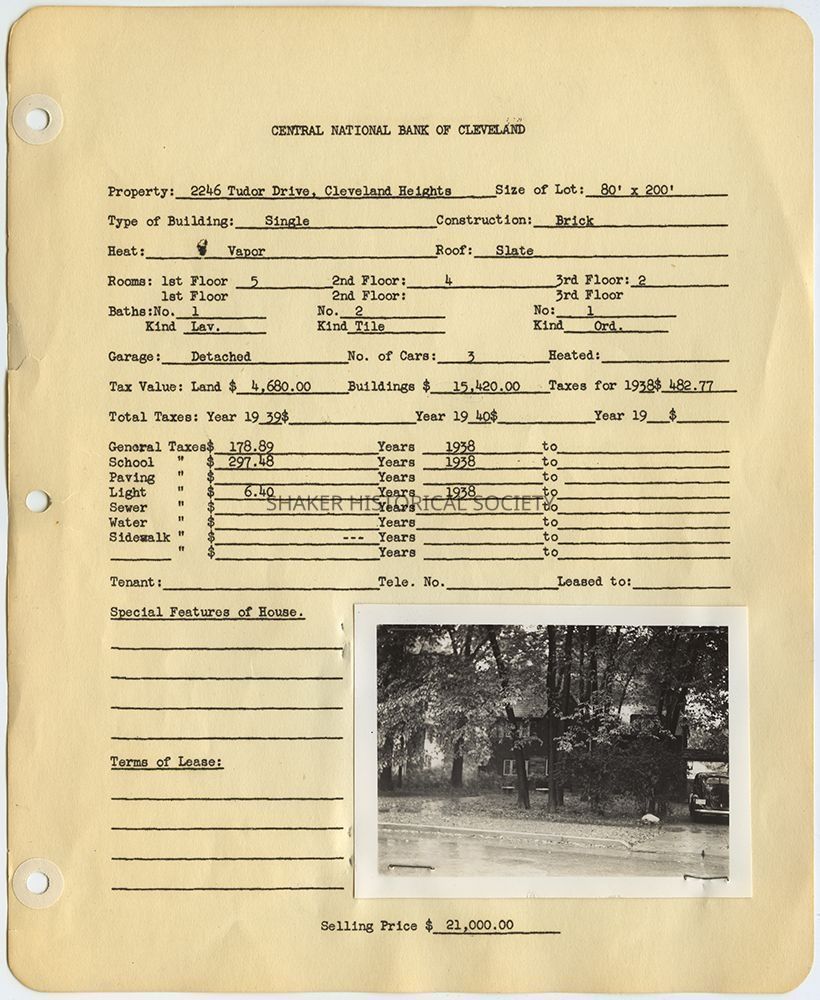 CENTRAL NATIONAL BANK OF CLEVELAND
Property: 2246 Tudor Drive, Cleveland Heights Size of Lot: 80' x 200'
Type of Building: Single Construction: Brick
Heat: Vapor Roof: Slate
Rooms: 1st Floor 5 2nd Floor: 4 3rd Floor: 2
1st Floor 2nd Floor: 3rd Floor
Baths:No. 1 No. 2 No: 1
Kind Lav. Kind Tile Kind Ord.
Garage: Detached No. of Cars: 3 Heated:
Tax Value: Land $ 4,680.00 Buildings $ 15,420.00 Taxes for 1938$ 482.77
Total Taxes: Year 19 39$ Year 19 40$ Year 19 $
General Taxes$ 178.89 Years 1938 to
School " $ 297.48 Years 1938 to
Paving " $ Years to
Light " $ 6.40 Years 1938 to
SHAKER HISTORICAL SOCIETY
Sewer " $ Years to
Water " $ Years to
Sidewalk " $ --- Years to
" $ Years to
Tenant: Tele. No. Leased to:
Special Features of House.
Terms of Lease:
Selling Price $ 21,000.00